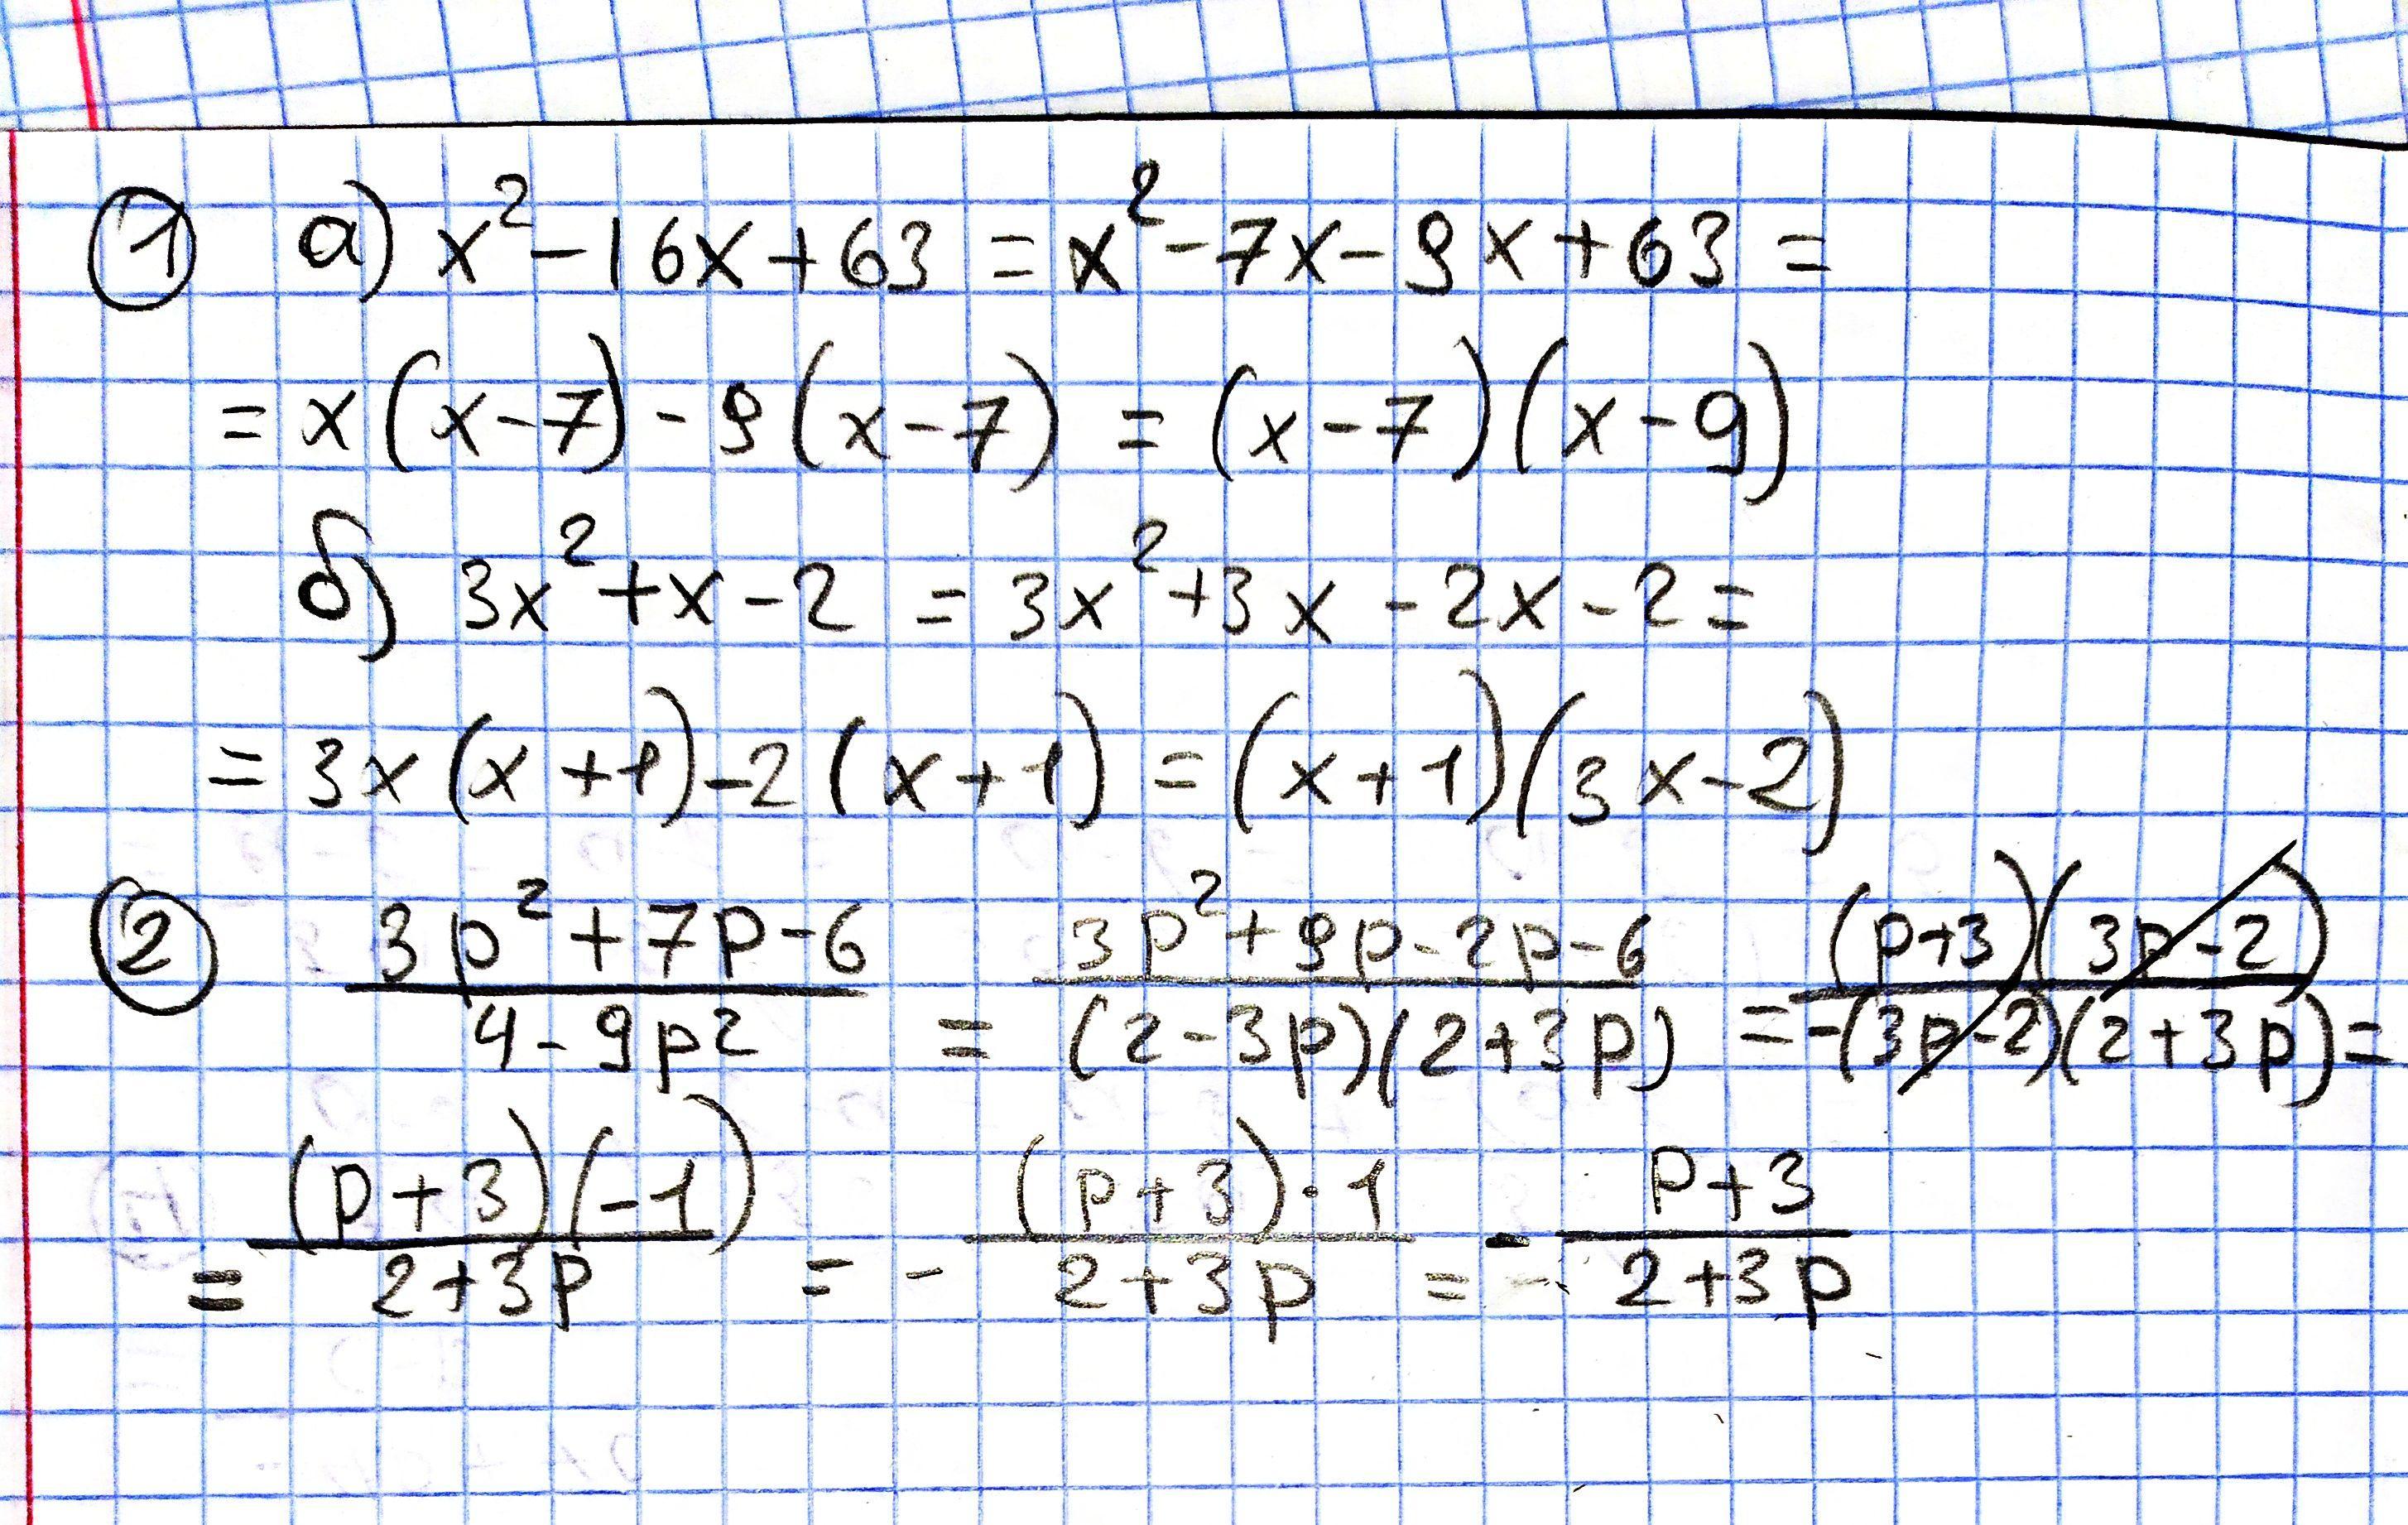 ① а) x² - 16x + 63 = x² - 7x - 9x + 63 =
= x(x - 7) - 9(x - 7) = (x - 7)(x - 9)
б) 3x² + x - 2 = 3x² + 3x - 2x - 2 =
= 3x(x + 1) - 2(x + 1) = (x + 1)(3x - 2)
② (3p² + 7p - 6)/(4 - 9p²) = (3p² + 9p - 2p - 6)/((2 - 3p)(2 + 3p)) = ((p + 3)(3p - 2))/(-(3p - 2)(2 + 3p)) =
= ((p + 3)(-1))/(2 + 3p) = - ((p + 3) · 1)/(2 + 3p) = - (p + 3)/(2 + 3p)